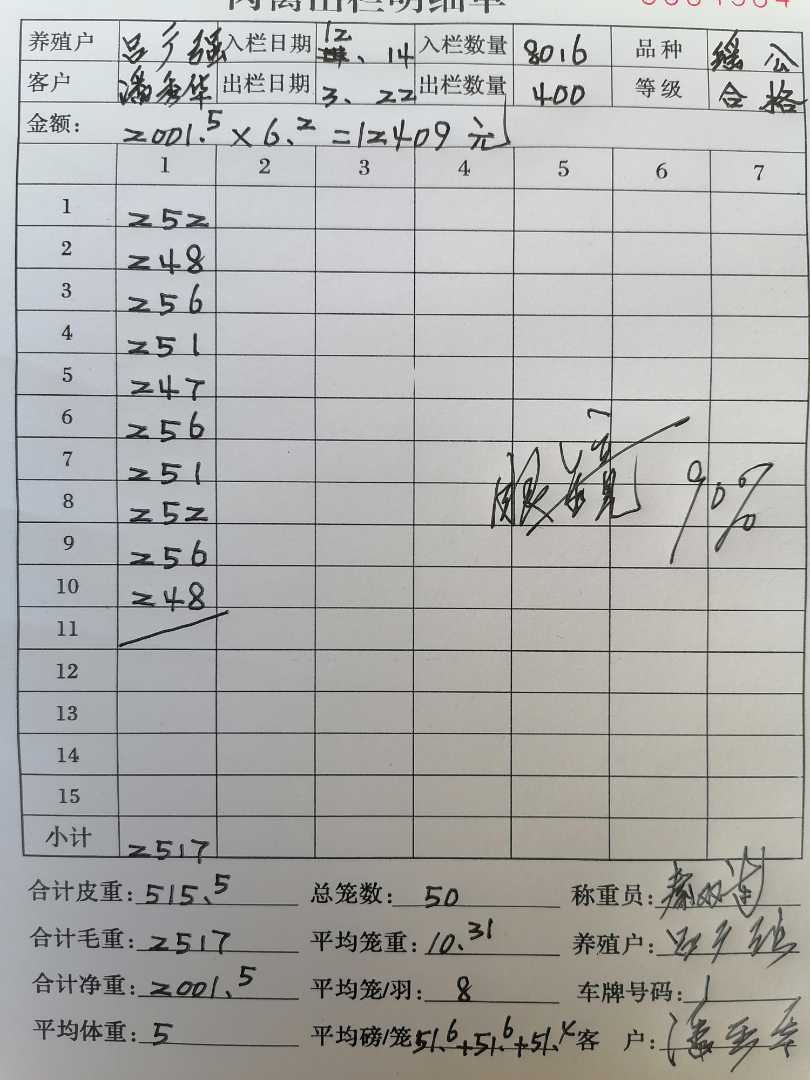 肉禽出栏明细单
养殖户 吕 强 入栏日期 12、14 入栏数量 8016 品种 瑶公
客户 潘秀华 出栏日期 3、22 出栏数量 400 等级 合格
金额: 2001.5 × 6.2 = 12409 元
1 2 3 4 5 6 7
1 252
2 248
3 256
4 251
5 247
6 256
7 251
8 252
9 256
10 248
11
12
13
14
15
小计 2517
90%
合计皮重: 515.5 总笼数: 50 称重员: 秦双
合计毛重: 2517 平均笼重: 10.31 养殖户:
合计净重: 2001.5 平均笼/羽: 8 车牌号码:
平均体重: 5 平均磅/笼 51.6+51.6+51. 客 户: 潘秀华